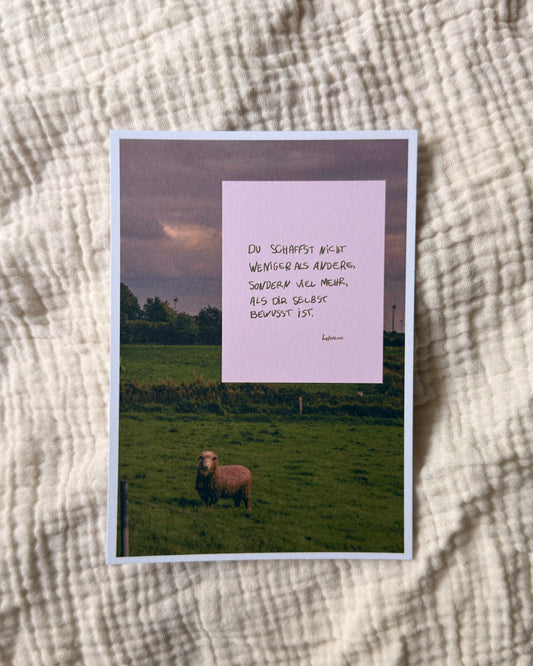 DU SCHAFFST NICHT
WENIGER ALS ANDERE,
SONDERN VIEL MEHR,
ALS DIR SELBST
BEWUSST IST.